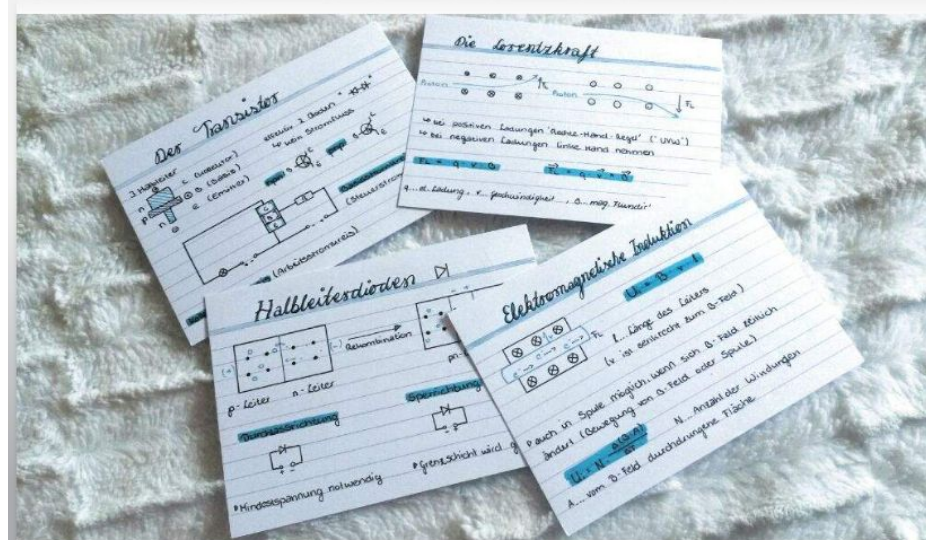 Der Transistor
3 Halbleiter
C (Kollektor)
B (Basis)
E (Emitter)
n
p
n
ersetzbar 2 Dioden
↳ kein Stromfluss
npn
pnp
B
C
E
C
B
E
(Steuerstrom
(Arbeitsstromkreis)
Die Lorentzkraft
Proton
FL
Proton
FL
↳ bei positiven Ladungen "Rechte-Hand-Regel" ("UVW")
↳ bei negativen Ladungen linke Hand nehmen
FL = q · v · B
q... el. Ladung, v... Geschwindigkeit, B... mag.
Halbleiterdioden
(+)
(-)
Rekombination
p-Leiter
n-Leiter
pn-
Durchlassrichtung
Sperrichtung
Mindestspannung notwendig
Grenzschicht wird g
Elektromagnetische Induktion
Ui = B · v · l
FL
l... Länge des Leiters
(v ist senkrecht zum B-Feld)
auch in Spule möglich, wenn sich B-Feld zeitlich
ändert (Bewegung von B-Feld oder Spule)
Ui = N · Δ(B·A)/Δt
N... Anzahl der Windungen
A... vom B-Feld durchdrungene Fläche